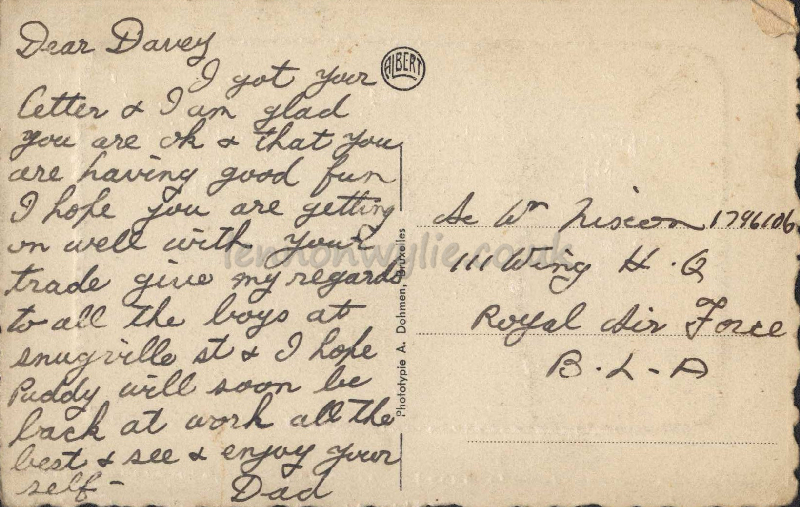 Dear Davey
I got your
letter & I am glad
you are ok & that you
are having good fun
I hope you are getting
on well with your
trade give my regards
to all the boys at
snugville st & I hope
Paddy will soon be
back at work all the
best & see & enjoy your
self -
Dad
ALBERT
Phototypie A. Dohmen, Bruxelles
Ac Wm Nixon 1796106
111 Wing H.Q
Royal Air Force
B.L.A
lennonwylie.co.uk